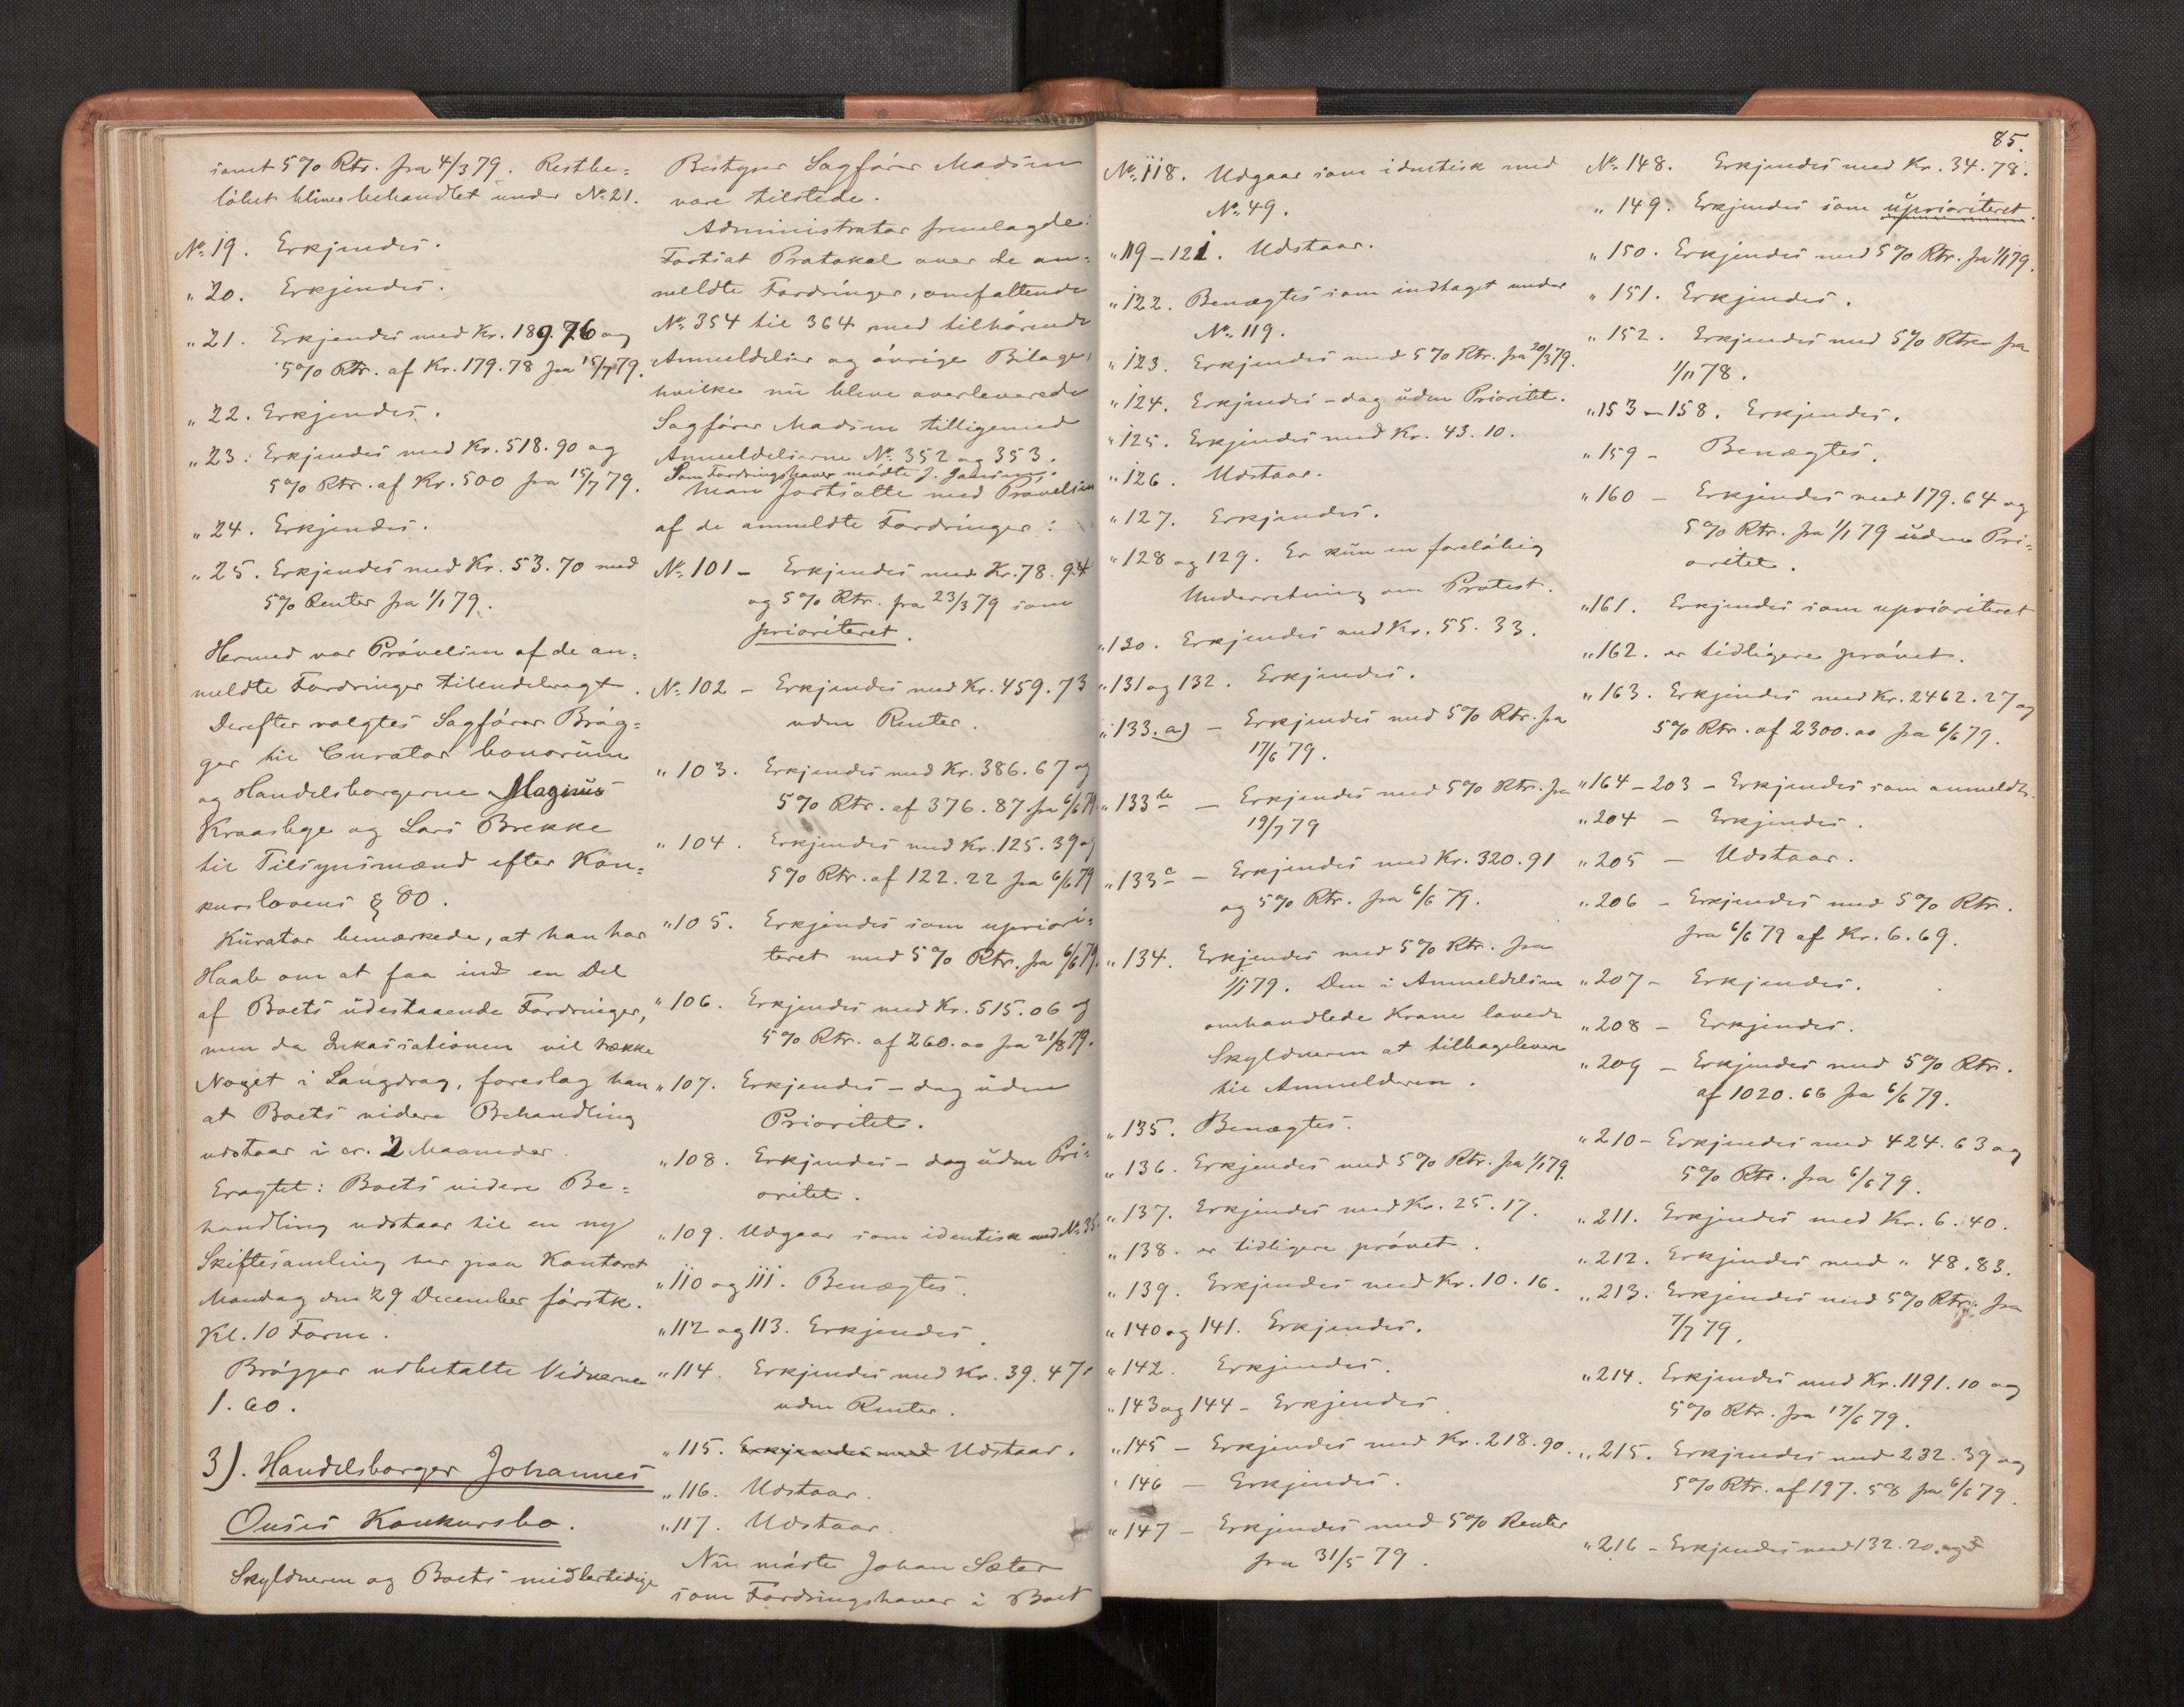 samt 5% Rtr. fra 4/3 79. Restbe=
løbet bliver behandlet under No 21.
No 19. Erkjendes.
" 20. Erkjendes.
" 21. Erkjendes med Kr. 189.76 og
5% Rtr. af Kr. 179.78 fra 15/7 79.
" 22. Erkjendes.
" 23. Erkjendes med Kr. 518.90 og
5% Rtr. af Kr. 500 fra 15/7 79.
" 24. Erkjendes.
" 25. Erkjendes med Kr. 53.70 med
5% Renter fra 1/1 79.
Hermed var Prøvelsen af de an=
meldte Fordringer tilendebragt.
Derefter valgtes Sagfører Brøg=
ger til Curator bonorum
og Handelsborgerne Magnus
Kraasbye og Lars Brekke
til Tilsynsmænd efter Kon=
kurslovens § 80.
Kurator bemærkede, at han har
Haab om at faa ind en Del
af Boets udestaaende Fordringer,
men da Inkassationen vil trække
Noget i Langdrag, foreslog han
at Boets videre Behandling
udstaar i cr. 2 Maaneder.
Eragtet: Boets videre Be=
handling udstaar til en ny
Skiftesamling her paa Kontoret
Mandag den 29 December førstk.
Kl. 10 Form.
Brøgger udbetalte Vidnerne
1.60.
3). Handelsborger Johannes
Ouses Konkursbo.
Skyldneren og Boets midlertidige
Bestyrer Sagfører Madsen
vare tilstede.
Administrator fremlagde:
Fortsat Protokol over de an=
meldte Fordringer, omfattende
No 354 til 364 med tilhørende
Anmeldelser og øvrige Bilage,
hvilke nu bleve overleverede
Sagfører Madsen tilligemed
Anmeldelserne No 352 og 353.
Som Fordringshaver mødte J. Jansen.
Man fortsatte med Prøvelsen
af de anmeldte Fordringer:
No 101 - Erkjendes med Kr. 78.94
og 5% Rtr. fra 23/3 79 som
prioriteret.
No 102 - Erkjendes med Kr. 459.73
uden Renter.
" 103. Erkjendes med Kr. 386.67 og
5% Rtr. af 376.87 fra 6/6 79.
" 104. Erkjendes med Kr. 125.39 og
5% Rtr. af 122.22 fra 6/6 79
" 105. Erkjendes som upriori=
teret med 5% Rtr. fra 6/6 79.
" 106. Erkjendes med Kr. 515.06 og
5% Rtr. af 260.00 fra 21/8 79.
" 107. Erkjendes - dog uden
Prioritet.
" 108. Erkjendes - dog uden Pri=
oritet.
" 109. Udgaar som identisk med No 35.
" 110 og 111. Benægtes.
" 112 og 113. Erkjendes
" 114. Erkjendes med Kr. 39.47
uden Renter.
" 115. Erkjendes med Udstaar.
" 116. Udstaar.
" 117. Udstaar.
Nu mødte Johan Sæter
som Fordringshaver i Boet
No 118. Udgaar som identisk med
No 49.
" 119-121. Udstaar.
" 122. Benægtes som indtaget under
No 119.
" 123. Erkjendes med 5% Rtr. fra 20/3 79.
" 124. Erkjendes - dog uden Prioritet.
" 125. Erkjendes med Kr. 43.10.
" 126. Udstaar.
" 127. Erkjendes.
" 128 og 129. Er kun en foreløbig
Underretning om Protest.
" 130. Erkjendes med Kr. 55.33.
" 131 og 132. Erkjendes.
" 133. a) - Erkjendes med 5% Rtr. fra
17/6 79.
" 133 b - Erkjendes med 5% Rtr. fra
19/7 79
" 133 c - Erkjendes med Kr. 320.91
og 5% Rtr. fra 6/6 79.
" 134. Erkjendes med 5% Rtr. fra
1/1 79. Den i Anmeldelsen
omhandlede Krane lovede
Skyldneren at tilbagelevere
til Anmelderen.
" 135. Benægtes.
" 136. Erkjendes med 5% Rtr. fra 1/1 79.
" 137. Erkjendes med Kr. 25.17.
" 138. er tidligere prøvet.
" 139. Erkjendes med Kr. 10.16.
" 140 og 141. Erkjendes.
" 142. Erkjendes.
" 143 og 144 - Erkjendes
" 145 - Erkjendes med Kr. 218.90.
" 146 - Erkjendes.
" 147 - Erkjendes med 5% Renter
fra 31/5 79.
85.
No 148. Erkjendes med Kr. 34.78.
" 149. Erkjendes som uprioriteret.
" 150. Erkjendes med 5% Rtr. fra 1/1 79.
" 151. Erkjendes.
" 152. Erkjendes med 5% Rtr fra
1/11 78.
" 153-158. Erkjendes.
" 159 - Benægtes.
" 160 - Erkjendes med 179.64 og
5% Rtr. fra 1/1 79 uden Pri=
oritet.
" 161. Erkjendes som uprioriteret
" 162. er tidligere prøvet.
" 163. Erkjendes med Kr. 2462.27 og
5% Rtr. af 2300.00 fra 6/6 79.
" 164-203 - Erkjendes som anmeldt.
" 204 - Erkjendes.
" 205 - Udstaar.
" 206 - Erkjendes med 5% Rtr.
fra 6/6 79 af Kr. 6.69.
" 207 - Erkjendes.
" 208 - Erkjendes.
" 209 - Erkjendes med 5% Rtr.
af 1020.66 fra 6/6 79.
" 210 - Erkjendes med 424.63 og
5% Rtr. fra 6/6 79.
" 211. Erkjendes med Kr. 6.40.
" 212. Erkjendes med " 48.83.
" 213. Erkjendes med 5% Rtr. fra
7/7 79.
" 214. Erkjendes med Kr. 1191.10 og
5% Rtr. fra 17/6 79.
" 215. Erkjendes med 232.39 og
5% Rtr. af 197.58 fra 6/6 79.
" 216 - Erkjendes med 132.20. og